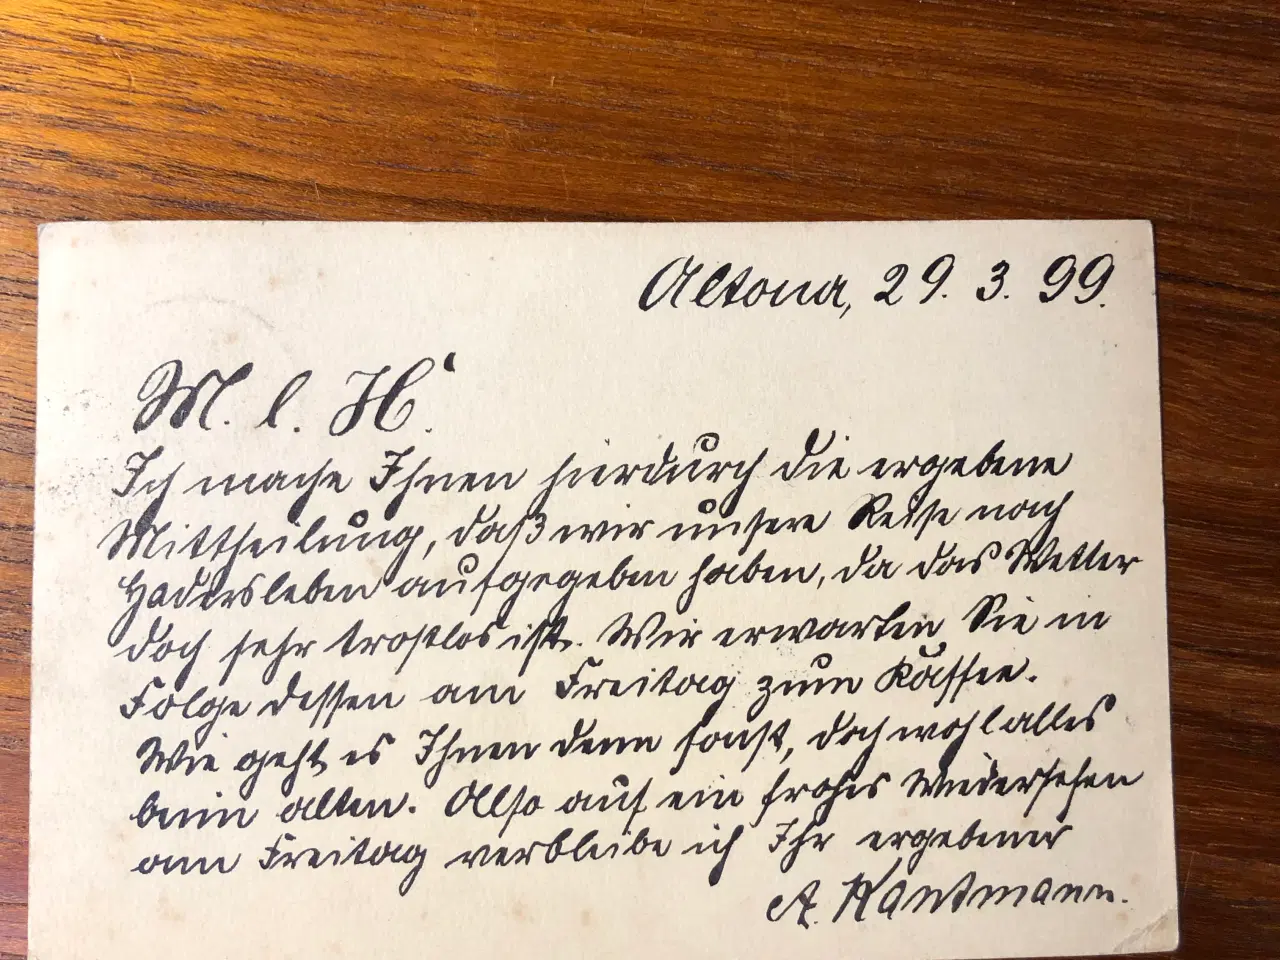 Altona, 29. 3. 99.
M. l. H.
Ich mache Ihnen hierdurch die ergebene
Mittheilung, daß wir unsere Reise nach
Hadersleben aufgegeben haben, da das Wetter
doch sehr trostlos ist. Wir erwarten Sie in
Folge dessen am Freitag zum Kaffee.
Wie geht es Ihnen denn sonst, doch wohl alles
beim alten. Also auf ein frohes Wiedersehen
am Freitag verbleibe ich Ihr ergebener
A.